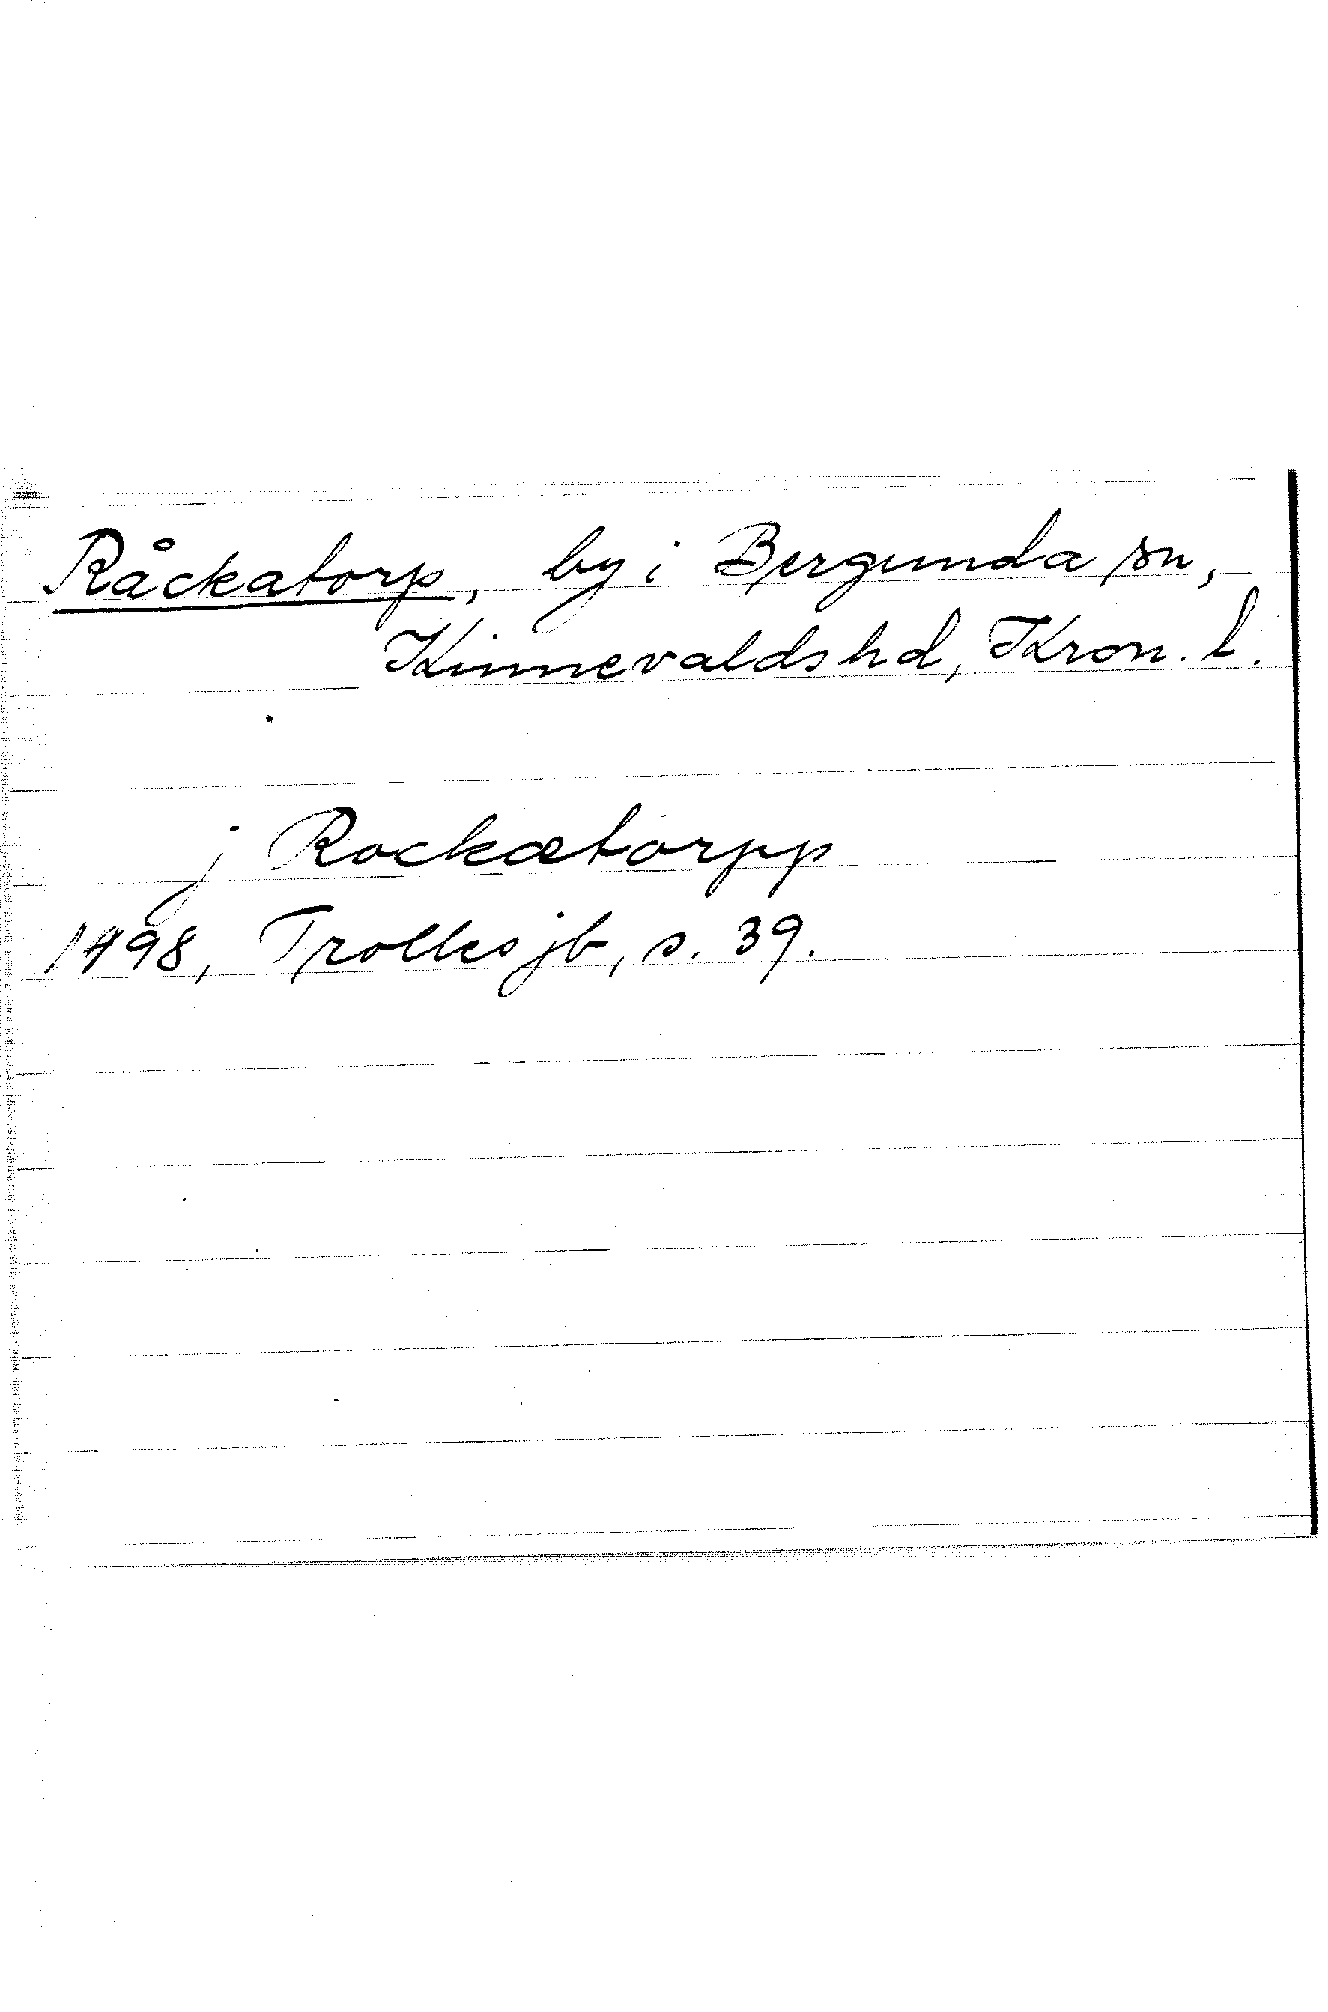 Råckatorp, by i Bergunda sn,
Kinnevaldshd, Kron. l.
j Rockætorpp
1498, Trolles jb, s. 39.